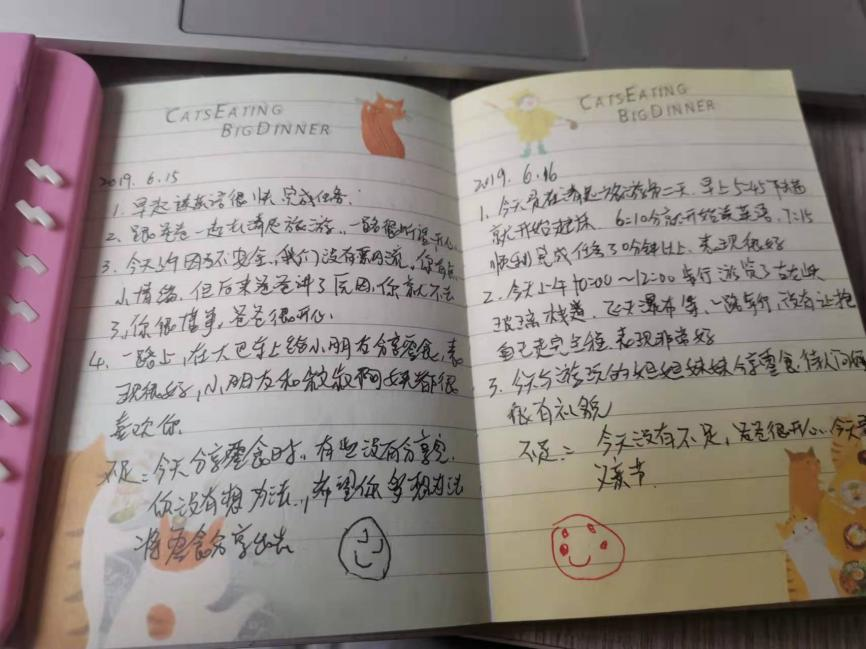 CATSEATING
BIGDINNER
2019. 6.15
1. 早起读英语很快完成任务.
2. 跟爸爸一起去清远旅游,一路很听话,开心.
3. 今天下午因为不安全,我们没有漂流,你有点
小情绪.但后来爸爸讲了原因,你就不去
了,你很懂事,爸爸很开心.
4. 一路上,在大巴车上给小朋友分享零食,表
现很好,小朋友和叔叔阿姨都很
喜欢你
不足:今天分享零食时,有些没有分享完.
你没有想办法,希望你多想办法
将零食分享出去
CATSEATING
BIGDINNER
2019. 6.16
1. 今天是在清远旅游第二天.早上5:45
就开始 6:10分就开始读英语,7:15
顺利完成任务30分钟以上,表现很好
2. 今天上午10:00~12:00步行游览了古龙峡
玻璃栈道,飞天瀑布等,一路步行,没有让抱
自己走完全程.表现非常好
3. 今天与游玩的姐姐妹妹分享零食,
很有礼貌
不足:今天没有不足,爸爸很开心,今天
父亲节.